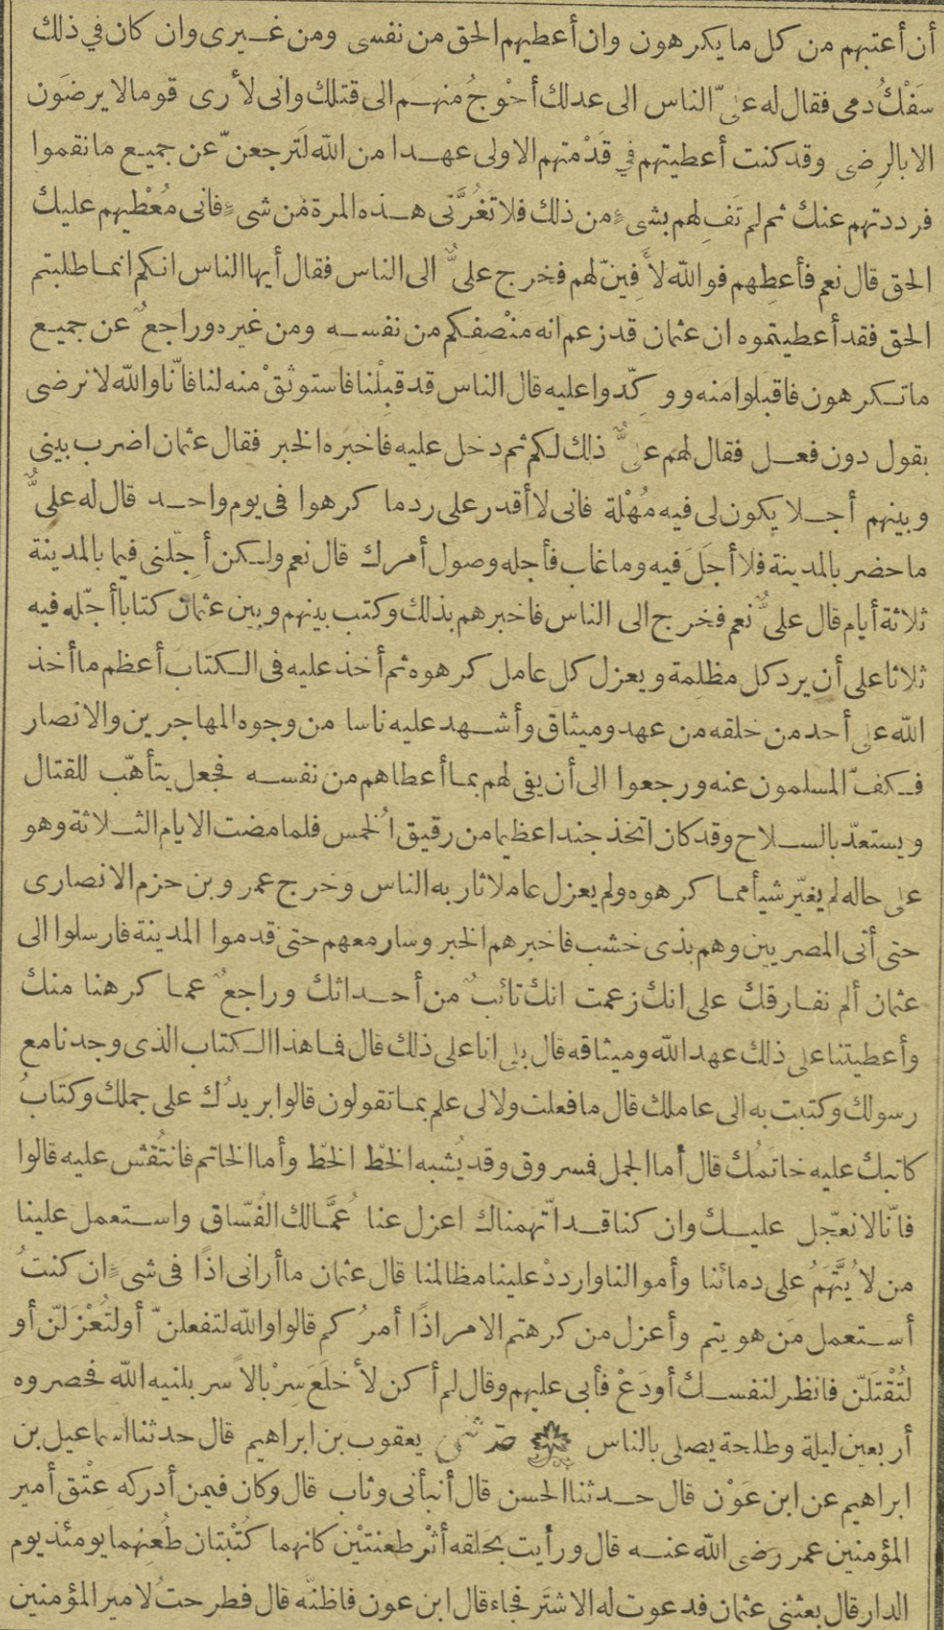 أن أعتبهم من كل ما يكرهون وان أعطيهم الحق من نفسى ومن غيرى وان كان في ذلك
سَفْكُ دمى فقال له علىّ الناس الى عدلك أحْوجُ منهم الى قتلك وانى لأرى قوما لا يرضَون
الا بالرِضى وقد كنت أعطيتهم في قَدْمتهم الاولى عهدا من الله لَترجعنّ عن جميع ما نقموا
فرددتهم عنك ثم لم تَفِ لهم بشىءٍ من ذلك فلا تَغُرَّنى هذه المرة من شىءٍ فانى مُعْطيهم عليك
الحق قال نعم فأعطِهم فوالله لأَفِينّ لهم فخرج علىٌّ الى الناس فقال أيها الناس انكم انما طلبتم
الحق فقد أعطيتموه ان عثمان قد زعم انه منْصفكم من نفسه ومن غيره وراجعٌ عن جميع
ما تكرهون فاقبلوا منه ووكّدوا عليه قال الناس قد قبلْنا فاستوثقْ منه لنا فانّا والله لا نرضى
بقول دون فعل فقال لهم علىٌّ ذلك لكم ثم دخل عليه فاخبره الخبر فقال عثمان اضرب بينى
وبينهم أجلا يكون لى فيه مُهْلة فانى لا أقدر على رد ما كرهوا فى يوم واحد قال له علىٌّ
ما حضر بالمدينة فلا أجَلَ فيه وما غاب فأجله وصول أمرك قال نعم ولكن أجّلنى فيما بالمدينة
ثلاثة أيام قال علىٌّ نعم فخرج الى الناس فاخبرهم بذلك وكتب بينهم وبين عثمان كتابا أجّله فيه
ثلاثا على أن يرد كل مظلِمة ويعزل كل عامل كرهوه ثم أخذ عليه فى الكتاب أعظم ما أخذ
الله على أحد من خلقه من عهد وميثاق وأشهد عليه ناسا من وجوه المهاجرين والانصار
فكفّ المسلمون عنه ورجعوا الى أن يفى لهم بما أعطاهم من نفسه فجعل يتأهّب للقتال
ويستعدّ بالسلاح وقد كان اتخذ جندا عظيما من رقيق الخُمس فلما مضت الايام الثلاثة وهو
على حاله لم يغيّر شيأ مما كرهوه ولم يعزل عاملا ثار به الناس وخرج عمرو بن حزم الانصارى
حتى أتى المصريين وهم بذى خشب فاخبرهم الخبر وسار معهم حتى قدموا المدينة فارسلوا الى
عثمان ألم نفارقك على انك زعمت انك تائبٌ من أحداثك وراجعٌ عما كرهنا منك
وأعطيتنا على ذلك عهد الله وميثاقه قال بلى انا على ذلك قال فما هذا الكتاب الذى وجدنا مع
رسولك وكتبت به الى عاملك قال ما فعلت ولا لى علم بما تقولون قالوا بريدُك على جملك وكتابُ
كاتبك عليه خاتمُك قال أما الجمل فمسروق وقد يُشبه الخطّ الخطّ وأما الخاتم فانتُقش عليه قالوا
فانّا لا نعّجل عليك وان كنا قد اتّهمناك اعزل عنا عُمَّالك الفُسّاق واستعمل علينا
من لا يُتَّهَمُ على دمائنا وأموالنا واردد علينا مظالمنا قال عثمان ما أرانى اذًا فى شىءٍ ان كنتُ
أستعمل مَن هويتم وأعزل من كرهتم الامر اذًا أمرُكم قالوا والله لتفعلنّ أو لتُعْزَلنّ أو
لتُقْتَلنّ فانظر لنفسك أودَعْ فأبى عليهم وقال لم أكن لأخلَعَ سِرْبالا سربلنيه الله فحصروه
أربعين ليلة وطلحة يصلى بالناس حدثنى يعقوب بن ابراهيم قال حدثنا اسماعيل بن
ابراهيم عن ابن عَوْن قال حدثنا الحسن قال أنبأنى وثاب قال وكان فيمن أدركه عتْق أمير
المؤمنين عمر رضى الله عنه قال ورأيت بحَلقه أثرْ طعنتيْن كانهما كُتْبتان طُعِنهُما يومئذ يوم
الدار قال بعثنى عثمان فدعوت له الاشتَر فجاء قال ابن عون فاظنّه قال فطرحتُ لامير المؤمنين